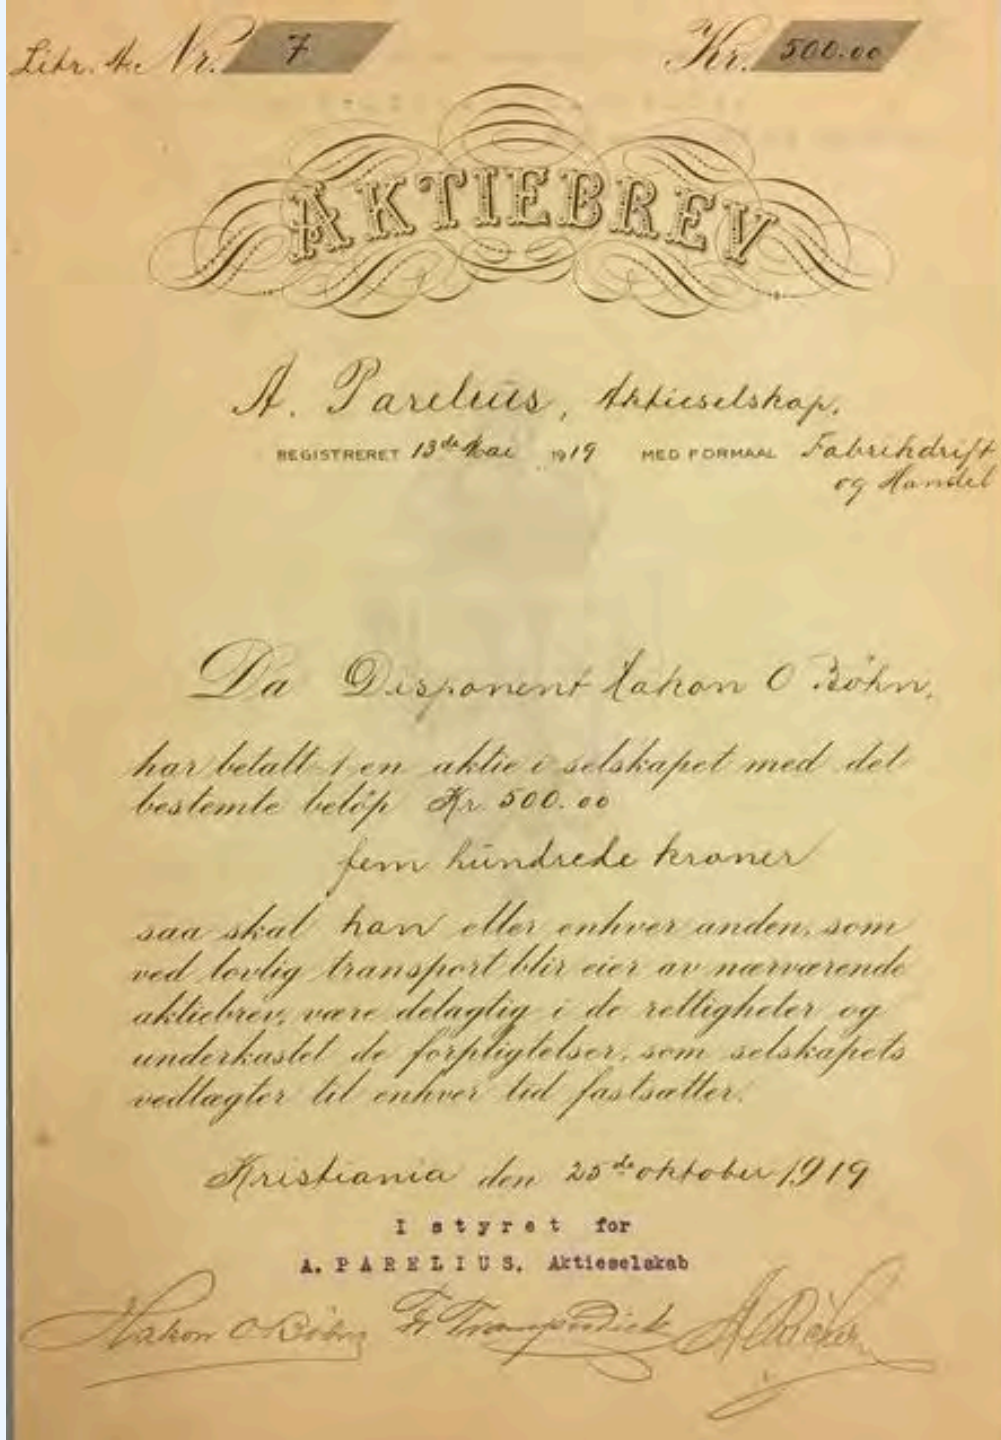 Litr. A. Nr. 7 Kr. 500.00
AKTIEBREV
A. Parelius, Aktieselskap.
REGISTRERET 13de Mai 1919 MED FORMAAL Fabrikdrift
og Handel
Da Disponent Hakon O Böhn,
har betalt 1 en aktie i selskapet med det
bestemte beløp Kr. 500.00
fem hundrede kroner
saa skal han eller enhver anden, som
ved lovlig transport blir eier av nærværende
aktiebrev, være delagtig i de rettigheter og
underkastet de forpligtelser, som selskapets
vedtægter til enhver tid fastsætter.
Kristiania den 25de oktober 1919
I styret for
A. PARELIUS, Aktieselskab
Hakon O Böhn